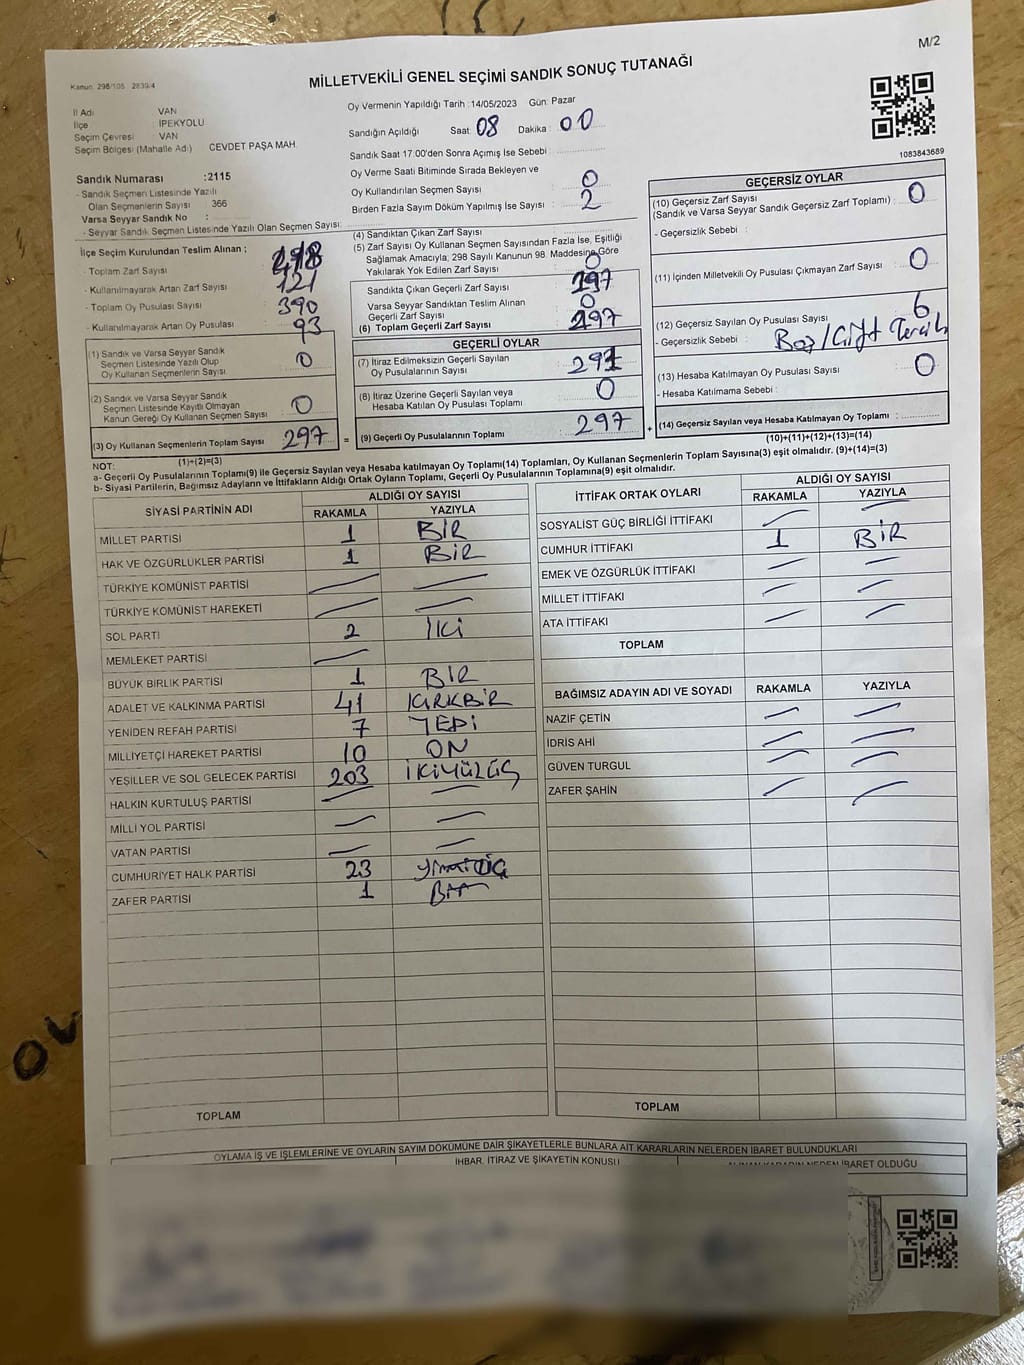 M/2
Kanun: 298/105 2839/4
MİLLETVEKİLİ GENEL SEÇİMİ SANDIK SONUÇ TUTANAĞI
İl Adı : VAN
İlçe : İPEKYOLU
Seçim Çevresi : VAN
Seçim Bölgesi (Mahalle Adı) CEVDET PAŞA MAH.
Oy Vermenin Yapıldığı Tarih : 14/05/2023 Gün: Pazar
Sandığın Açıldığı Saat: 08 Dakika : 00
Sandık Saat 17.00'den Sonra Açımış İse Sebebi :
Oy Verme Saati Bitiminde Sırada Bekleyen ve
Oy Kullandırılan Seçmen Sayısı 0
Birden Fazla Sayım Döküm Yapılmış İse Sayısı : 2
1083843689
Sandık Numarası : 2115
- Sandık Seçmen Listesinde Yazılı
Olan Seçmenlerin Sayısı : 366
Varsa Seyyar Sandık No :
- Seyyar Sandık Seçmen Listesinde Yazılı Olan Seçmen Sayısı:
İlçe Seçim Kurulundan Teslim Alınan ;
- Toplam Zarf Sayısı
- Kullanılmayarak Artan Zarf Sayısı : 121
- Toplam Oy Pusulası Sayısı : 390
- Kullanılmayarak Artan Oy Pusulası : 93
(1) Sandık ve Varsa Seyyar Sandık
Seçmen Listesinde Yazılı Olup
Oy Kullanan Seçmenlerin Sayısı : 0
(2) Sandık ve Varsa Seyyar Sandık
Seçmen Listesinde Kayıtlı Olmayan
Kanun Gereği Oy Kullanan Seçmen Sayısı : 0
(3) Oy Kullanan Seçmenlerin Toplam Sayısı : 297 =
(1)+(2)=(3)
(4) Sandıktan Çıkan Zarf Sayısı :
(5) Zarf Sayısı Oy Kullanan Seçmen Sayısından Fazla İse, Eşitliği
Sağlamak Amacıyla, 298 Sayılı Kanunun 98. Maddesine Göre
Yakılarak Yok Edilen Zarf Sayısı : 0
Sandıkta Çıkan Geçerli Zarf Sayısı : 297
Varsa Seyyar Sandıktan Teslim Alınan
Geçerli Zarf Sayısı : 0
(6) Toplam Geçerli Zarf Sayısı : 297
GEÇERLİ OYLAR
(7) İtiraz Edilmeksizin Geçerli Sayılan
Oy Pusulalarının Sayısı : 291
(8) İtiraz Üzerine Geçerli Sayılan veya
Hesaba Katılan Oy Pusulası Toplamı : 0
(9) Geçerli Oy Pusulalarının Toplamı : 297 +
GEÇERSİZ OYLAR
(10) Geçersiz Zarf Sayısı
(Sandık ve Varsa Seyyar Sandık Geçersiz Zarf Toplamı) : 0
- Geçersizlik Sebebi :
(11) İçinden Milletvekili Oy Pusulası Çıkmayan Zarf Sayısı : 0
(12) Geçersiz Sayılan Oy Pusulası Sayısı : 6
- Geçersizlik Sebebi : Boş/Çift Tercih
(13) Hesaba Katılmayan Oy Pusulası Sayısı : 0
- Hesaba Katılmama Sebebi :
(14) Geçersiz Sayılan veya Hesaba Katılmayan Oy Toplamı :
(10)+(11)+(12)+(13)=(14)
NOT:
a- Geçerli Oy Pusulalarının Toplamı(9) ile Geçersiz Sayılan veya Hesaba katılmayan Oy Toplamı(14) Toplamları, Oy Kullanan Seçmenlerin Toplam Sayısına(3) eşit olmalıdır. (9)+(14)=(3)
b- Siyasi Partilerin, Bağımsız Adayların ve İttifakların Aldığı Ortak Oyların Toplamı, Geçerli Oy Pusulalarının Toplamına(9) eşit olmalıdır.
SİYASİ PARTİNİN ADI ALDIĞI OY SAYISI
RAKAMLA YAZIYLA
MİLLET PARTİSİ 1 BİR
HAK VE ÖZGÜRLÜKLER PARTİSİ 1 BİR
TÜRKİYE KOMÜNİST PARTİSİ
TÜRKİYE KOMÜNİST HAREKETİ
SOL PARTİ 2 İKİ
MEMLEKET PARTİSİ
BÜYÜK BİRLİK PARTİSİ 1 BİR
ADALET VE KALKINMA PARTİSİ 41 KIRKBİR
YENİDEN REFAH PARTİSİ 7 YEDİ
MİLLİYETÇİ HAREKET PARTİSİ 10 ON
YEŞİLLER VE SOL GELECEK PARTİSİ 203 İKİYÜZÜÇ
HALKIN KURTULUŞ PARTİSİ
MİLLİ YOL PARTİSİ
VATAN PARTİSİ
CUMHURİYET HALK PARTİSİ 23
ZAFER PARTİSİ 1 Bir
TOPLAM
İTTİFAK ORTAK OYLARI ALDIĞI OY SAYISI
RAKAMLA YAZIYLA
SOSYALİST GÜÇ BİRLİĞİ İTTİFAKI
CUMHUR İTTİFAKI 1 BİR
EMEK VE ÖZGÜRLÜK İTTİFAKI
MİLLET İTTİFAKI
ATA İTTİFAKI
TOPLAM
BAĞIMSIZ ADAYIN ADI VE SOYADI RAKAMLA YAZIYLA
NAZİF ÇETİN
İDRİS AHİ
GÜVEN TURGUL
ZAFER ŞAHİN
TOPLAM
OYLAMA İŞ VE İŞLEMLERİNE VE OYLARIN SAYIM DÖKÜMÜNE DAİR ŞİKAYETLERLE BUNLARA AİT KARARLARIN NELERDEN İBARET BULUNDUKLARI
İHBAR, İTİRAZ VE ŞİKAYETİN KONUSU
ALINAN KARARIN NEDEN İBARET OLDUĞU